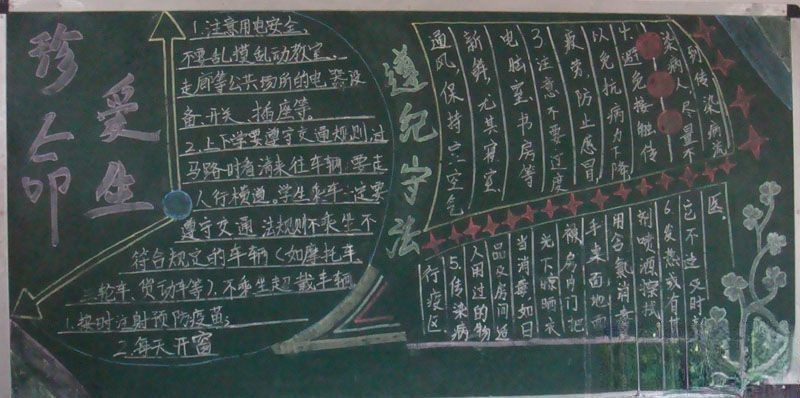 珍爱生命
1.注意用电安全、
不要乱摸乱动教室、
走廊等公共场所的电器设
备、开关、插座等。
2.上下学要遵守交通规则,过
马路时看清来往车辆,要走
人行横道。学生乘车一定要
遵守交通法规则不乘坐不
符合规定的车辆(如摩托车、
三轮车、货动车等)、不乘坐超载车辆
1.按时注射预防疫苗;
2.每天开窗
遵纪守法
通风,保持室空气
新鲜,尤其寝室、
电脑室、书房等
3注意不要过度
疲劳,防止感冒
以免抗病力下降
4.避免接触传
染病人,尽量不
到传染病流
行疫区
5.传染病
人用过的物
品及房间适
当消毒,如日
光下晾晒衣
被房内门把
手桌面地面
用含氯消毒
剂喷洒擦拭
6.发热或有什
它不适及时
医。